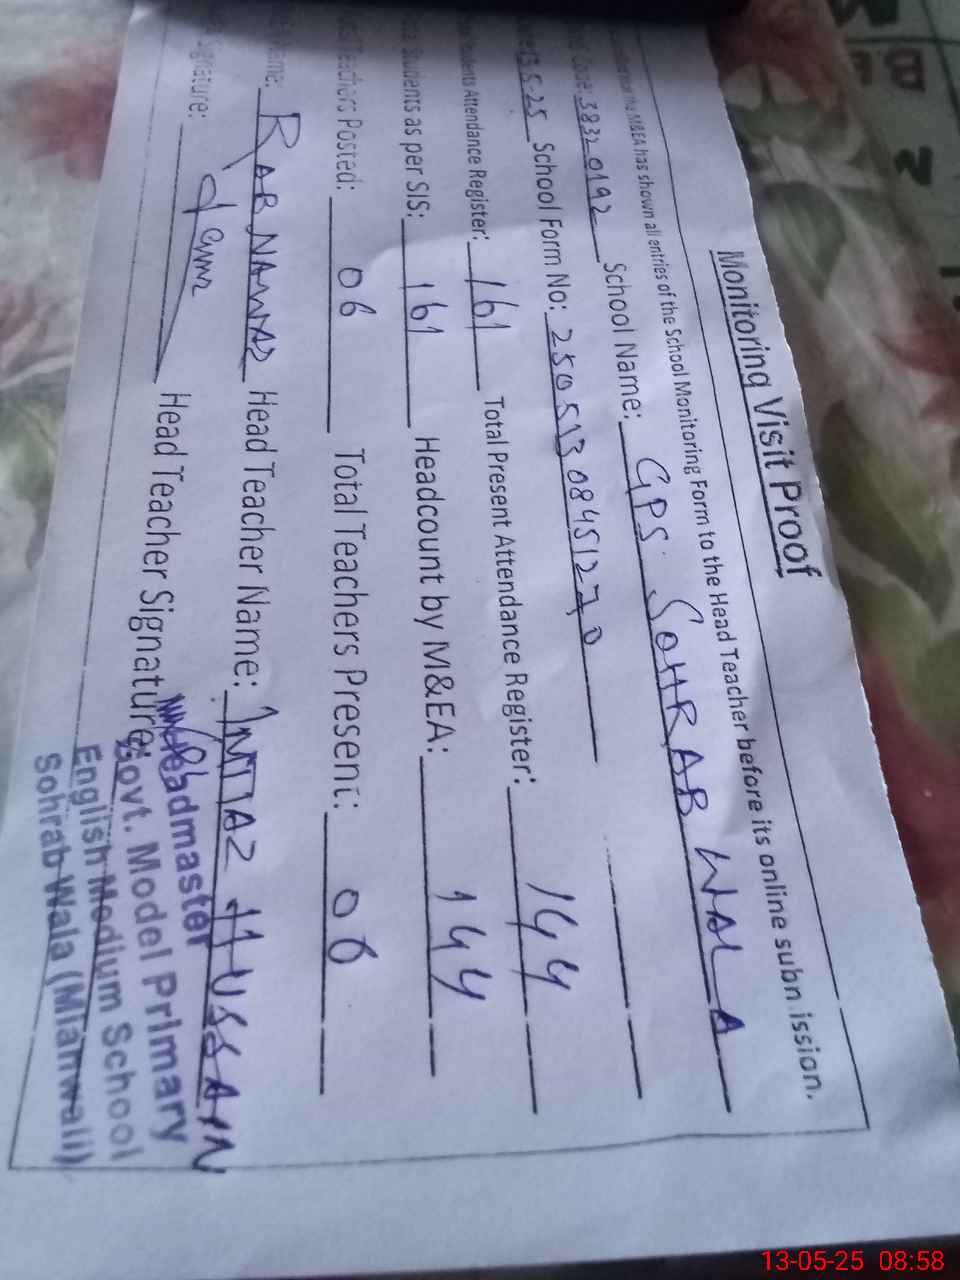 Monitoring Visit Proof
the M&EA has shown all entries of the School Monitoring Form to the Head Teacher before its online submission.
Code: 38320192 School Name: GPS SOHRAB WALA
13.5-25 School Form No: 25051308451270
Students Attendance Register: 161 Total Present Attendance Register: 144
Students as per SIS: 161 Headcount by M&EA: 144
Teachers Posted: 06 Total Teachers Present: 06
Name: RAB NAWAZ Head Teacher Name: IMTIAZ HUSSAIN
Signature: Head Teacher Signature:
Headmaster
Govt. Model Primary
English Medium School
Sohrab Wala (Mianwali)
13-05-25 08:58